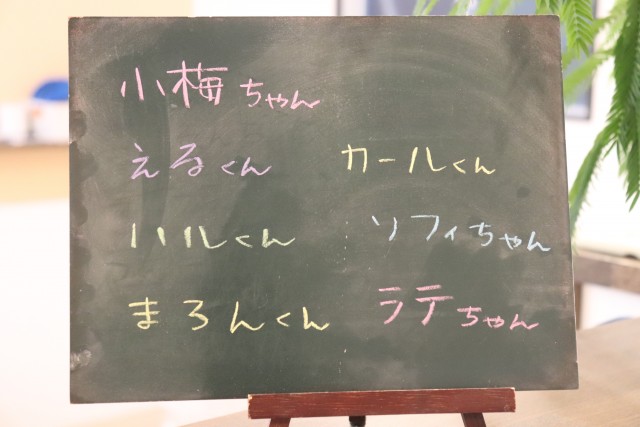 小梅ちゃん
えるくん カールくん
ハルくん ソフィちゃん
まろんくん ラテちゃん